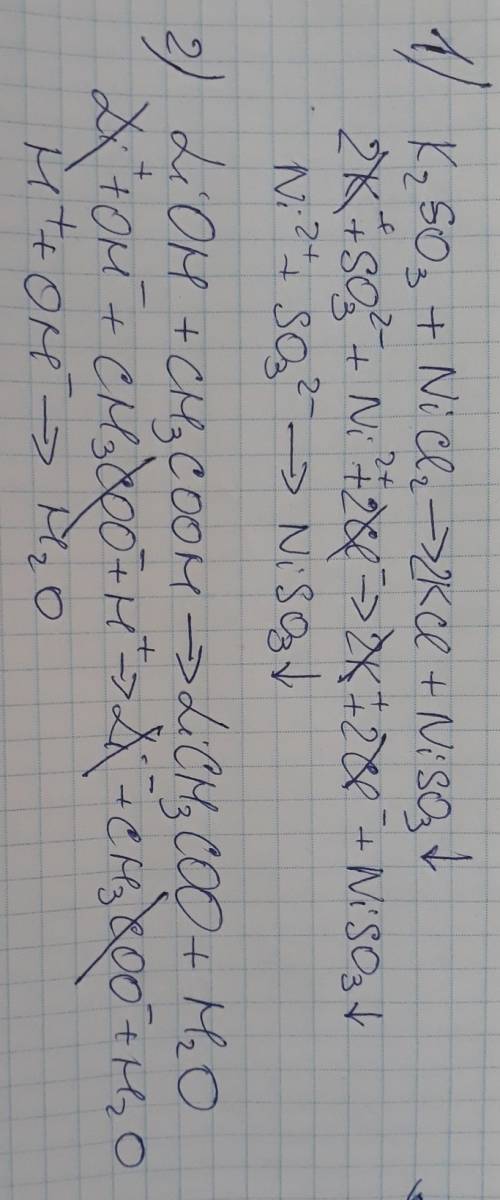 1) K₂SO₃ + NiCl₂ → 2KCl + NiSO₃↓
2K⁺ + SO₃²⁻ + Ni²⁺ + 2Cl⁻ → 2K⁺ + 2Cl⁻ + NiSO₃↓
Ni²⁺ + SO₃²⁻ → NiSO₃↓
2) LiOH + CH₃COOH → LiCH₃COO + H₂O
Li⁺ + OH⁻ + CH₃COO⁻ + H⁺ → Li⁻ + CH₃COO⁻ + H₂O
H⁺ + OH⁻ → H₂O